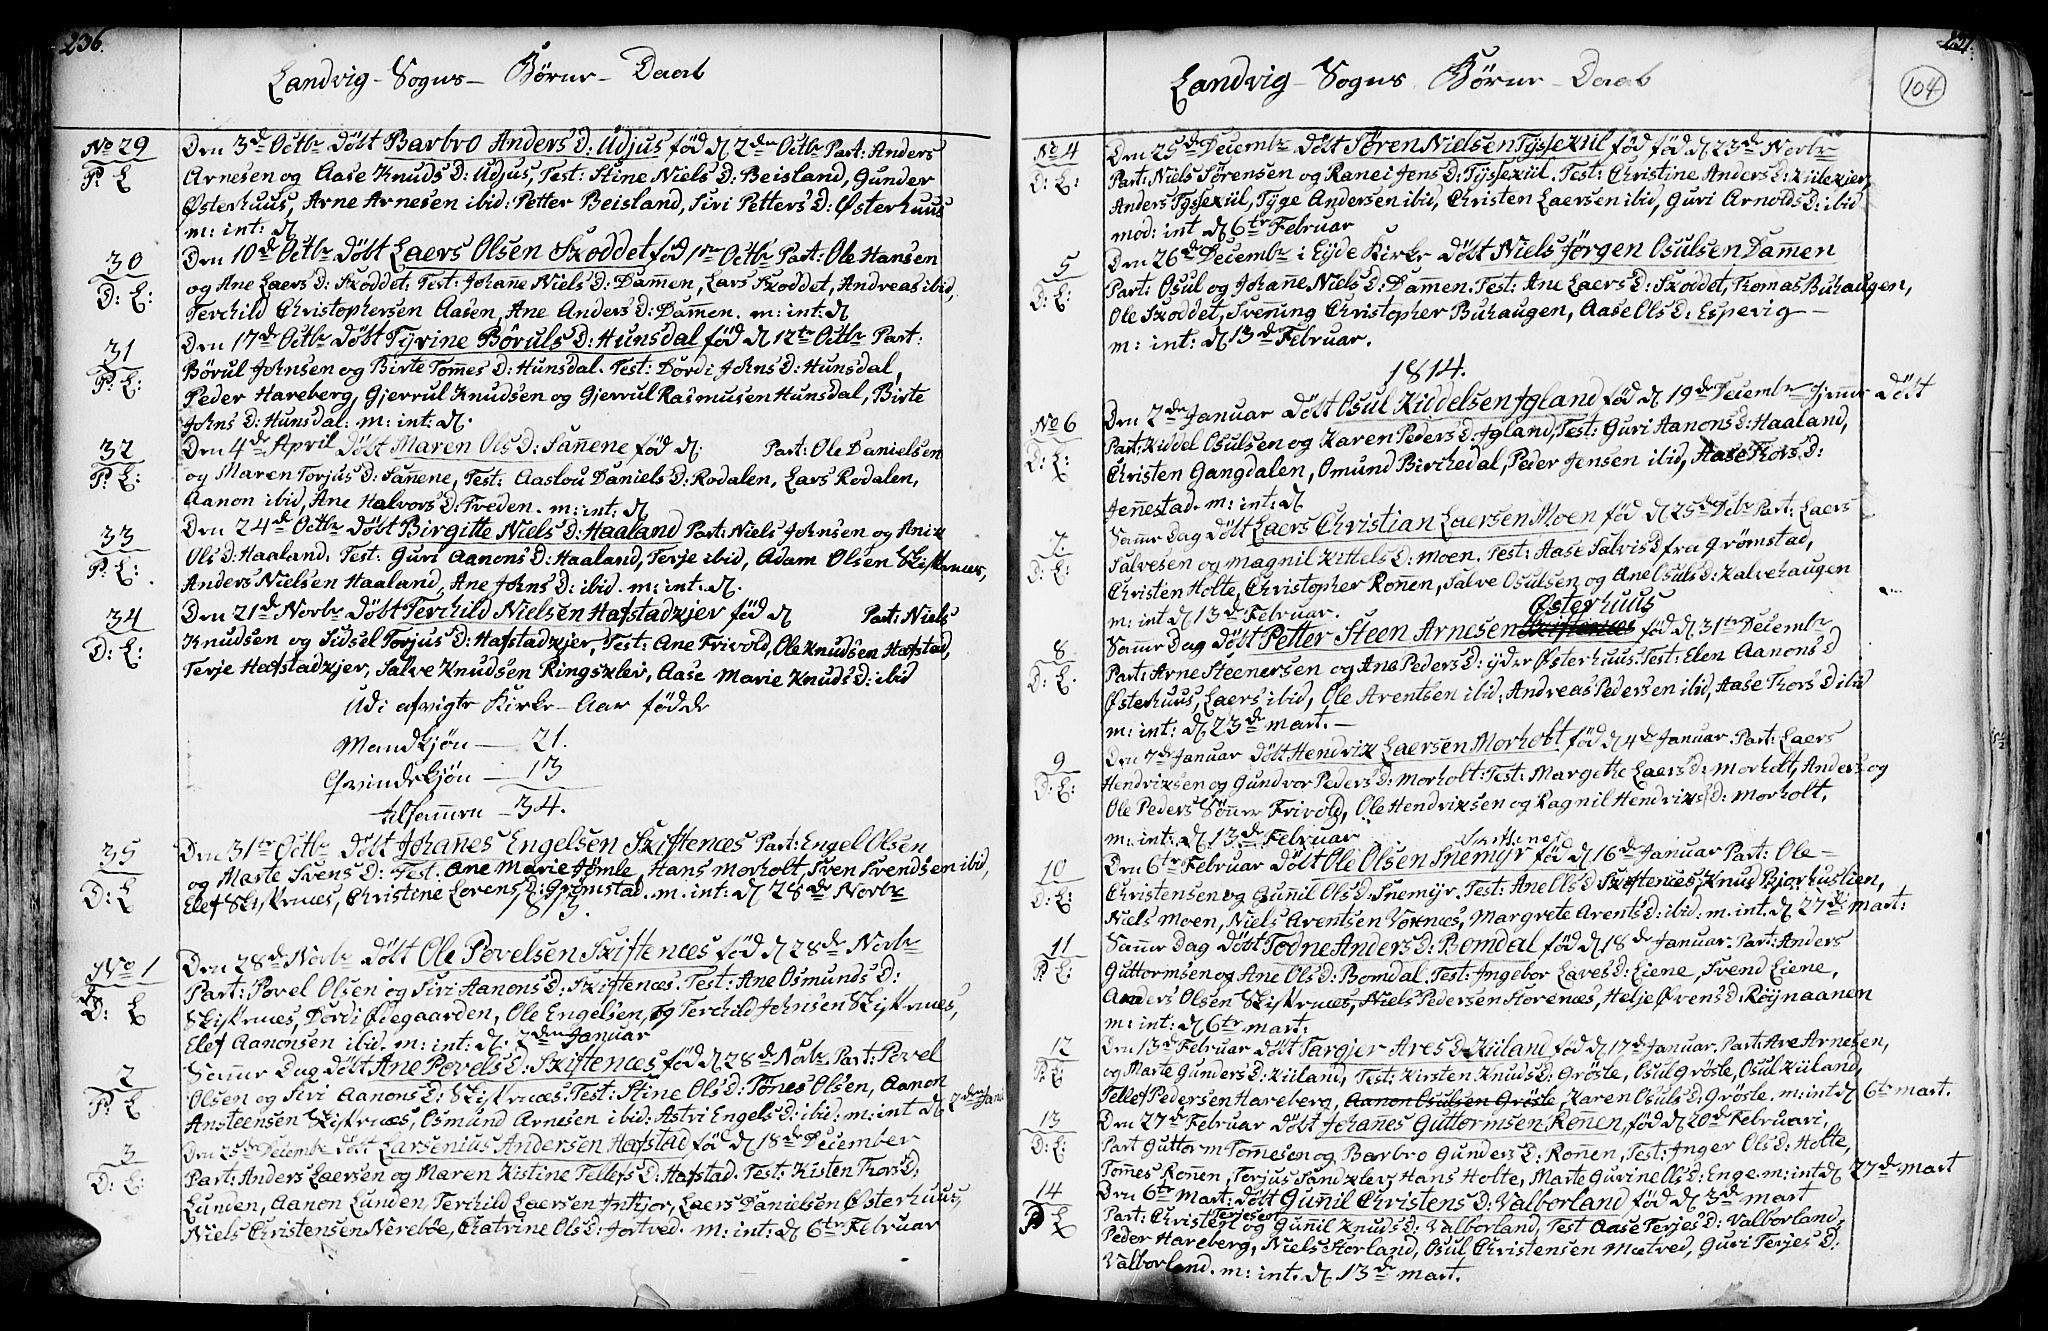 236.
Landvig – Sogns – Børne – Daab
No 29
P: E
Den 3de Octbr døbt Barbro Anders D: Udjus fød d 2den Octbr Part: Anders
Arnesen og Aase Knuds D: Udjus, Test: Stine Niels D: Beisland, Gunder
Østerhuus, Arne Arnesen ibid: Petter Beisland, Siri Petters D: Østerhuus
m: int: d
30
D: E:
Den 10de Octbr døbt Laers Olsen Skoddet fød 1te Octbr Part: Ole Hansen
og Ane Laers D: Skoddet: Test: Johanne Niels D: Dammen, Lars Skoddet, Andreas ibid,
Terchild Christophersen Aasen, Ane Anders D: Dammen. m: int: d
31
P: E:
Den 17de Octbr døbt Tyrine Børuls D: Hunsdal fød d 12te Octbr Part:
Børul Johnsen og Birte Tomes D: Hunsdal. Test: Dordi Johns D: Hunsdal,
Peder Hareberg, Gjerrul Knudsen og Gjerrul Rasmusen Hunsdal, Birte
Johns D: Hunsdal: m: int: d.
32
P: E:
Den 4de April døbt Maren Ols D: Sannene fød d. Part: Ole Danielsen
og Maren Torjus D: Sannene, Test: Aaslou Daniels D: Rodalen, Lars Rodalen,
Aanon ibid, Ane Halvors D: Freden. m: int: d
33
P: E:
Den 24de Octbr døbt Birgitte Niels D: Haaland Part: Niels Johnsen og Anik
Ols D: Haaland. Test: Guri Aanons D: Haaland, Terje ibid, Adam Olsen Skiftenæs,
Anders Nielsen Haaland, Ane Johns D: ibid. m: int: d.
34
D: E:
Den 21de Novbr døbt Terchild Nielsen Hafstadkjer fød d Part: Niels
Knudsen og Sidsel Torjus D: Hafstadkjer, Test: Ane Frivold, Ole Knudsen Hafstad,
Terje Hafstadkjer, Salve Knudsen Ringsklev, Aase Marie Knuds D: ibid
Udi afvigte Kirke – Aar fødde
Mandkjøn – 21.
Qvindekjøn – 13
tilsammen – 34.
35
D: E
Den 31te Octbr døbt Johannes Engelsen Skiftenæs Part: Engel Olsen
og Marte Svens D: Test. Ane Marie Tømle, Hans Morholt, Sven Svendsen ibid,
Elef Skiftenæs, Christine Lorens D: Grømstad. m. int: d 28de Novbr
1813.
No 1
D: E
Den 28de Novbr døbt Ole Povelsen Skiftenæs fød d 28de Novbr
Part: Povel Olsen og Siri Aanons D: Skiftenæs. Test: Ane Osmunds D:
Skiftenæs, Dordi Ødegaarden, Ole Engelsen, og Terchild Johnsen Skiftenæs,
Elef Aanonsen ibid. m: int: d. 2den Januar
2
P: E
Samme Dag døbt Ane Povels D: Skiftenæs fød d 28de Novbr. Part: Povel
Olsen og Siri Aanons D: Skiftenæs. Test: Stine Ols D: Tønes Olsen, Aanon
Ansteensen Skiftenæs, Osmund Arnesen ibid: Astri Engels D: ibid: m: int d 2den Jani
3
D: E:
Den 25de Decembr døbt Larsenius Andersen Hafstad fød d 18de December
Part: Anders Laersen og Maren Kistine Tellefs D: Hafstad. Test: Kisten Thors D:
Lunden, Aanon Lunden, Terchild Laersen Inthjor, Laers Danielsen Østerhuus,
Niels Christensen Nereböe, Chatrine Ols D: Jortved. m: int: d 6te Februar
237.
104
Landvig – Sogns Børne – Daab
No 4
D: E:
Den 25de Decembr døbt Søren Nielsen Tyssekiil fød fød d 23de Novbr
Part: Niels Sørensen og Ranei Jens D: Tyssekiil. Test: Christine Anders D: Kiilekier,
Anders Tyssekiil, Tyge Andersen ibid, Christen Laersen ibid, Guri Arnolds D: ibid
mod: int d 6te Februar
5
D: E:
Den 26de Decembr i Eyde Kirke døbt Niels Jørgen Osulsen Dammen
Part: Osul og Johanne Niels D: Dammen. Test: Ane Laers D: Skoddet, Thomas Buhaugen,
Ole Skoddet, Svenning Christopher Buhaugen, Aase Ols D: Espevig –
m: int: d 13de Februar.
1814.
No 6
D: E:
Den 2de Januar døbt Osul Kiddelsen Igland fød d 19de Decembr Hjemme døbt
Part: Kiddel Osulsen og Karen Peders D: Igland, Test: Guri Aanons D: Haaland,
Christen Gangdalen, Omund Birchedal, Peder Jensen ibid, Aase Thors D:
Jennestad. m: int: d
7.
D: E:
Samme Dag døbt Laers Christian Laersen Moen fød d 25de Debr Part: Laers
Salvesen og Magnil Kittels D: Moen. Test: Aase Salvis D fra Grømstad,
Christen Holte, Christopher Ronnen, Salve Osulsen og Ane Osuls D: Kalvehaugen
m: int d 13de Februar.
8
D: E.
Østerhuus
Samme Dag døbt Petter Steen Arnesen Skiftenæs fød d 31te Decembr
Part: Arne Steenersen og Ane Peders D: ydre Østerhuus: Test: Elen Aanons D
Østerhuus, Laers ibid, Ole Arentsen ibid, Andreas Pedersen ibid, Aase Thors D ibid
m: int: d 23de Mart. –
9
D: E:
Den 7de Januar døbt Hendrix Laersen Morholt fød d 4de Januar. Part: Laers
Hendrixsen og Gundvor Peders D: Morholt: Test: Margethe Laers D: Morholt, Anders og
Ole Peders Sønner Frivold, Ole Hendrixsen og Ragnil Hendrixs D: Morholt.
m: int: d 13de Februar
10
D: E:
Den 6te Februar døbt Ole Olsen Snemyr fød d 16de Januar Part: Ole –
Christensen og Gunnil Ols D: Snemyr. Test: Ane Ols D Skiftenæs, Knud Bjorhuslien,
Niels Moen, Niels Arentsen Voxnæs, Margrete Arents D: ibid: m. int. d 27de Mart:
11
P: E:
Samme Dag døbt Todne Anders D: Bomdal fød d 18de Januar. Part: Anders
Guttormsen og Ane Ols D: Bomdal. Test: Ingebor Laves D: Liene, Svend Liene,
Anders Olsen Skiftenæs, Niels Pedersen Storenæs, Helje Øvens D: Røynaanen
m: int: d 6te Mart:
12
P: E
Den 13de Februar døbt Targjer Ares D Kiiland fød d 17de Januar. Part: Are Arnesen,
og Marte Gunders D: Kiiland, Test: Kirsten Knuds D: Grösle, Osul Grösle, Osul Kiiland,
Tellef Pedersen Hareberg, Aanon Osulsen Grösle, Karen Osuls D: Grösle. m: int d 6te Mart.
13
D: E:
Den 27de Februar døbt Johannes Guttormsen Ronnen, fød d 20de Februari,
Part Guttorm Tommesen og Barbro Gunders D: Ronnen, Test: Inger Ols D: Holte,
Tomes Ronnen, Torjus Sandklev, Hans Holte, Marte Gurinells D: Enge m: int d 27de Mart
14
P E
Den 6te Mart: døbt Gunnil Christens D: Valborland fød d 3de Mart
Part: Christen Terjesen og Gunnil Knuds D: Valborland, Test Aase Terjes D: Valborland,
Peder Hareberg, Niels Storland, Osul Christensen Mætved, Guri Terjes D:
Valborland. m: int. d 13de Mart.